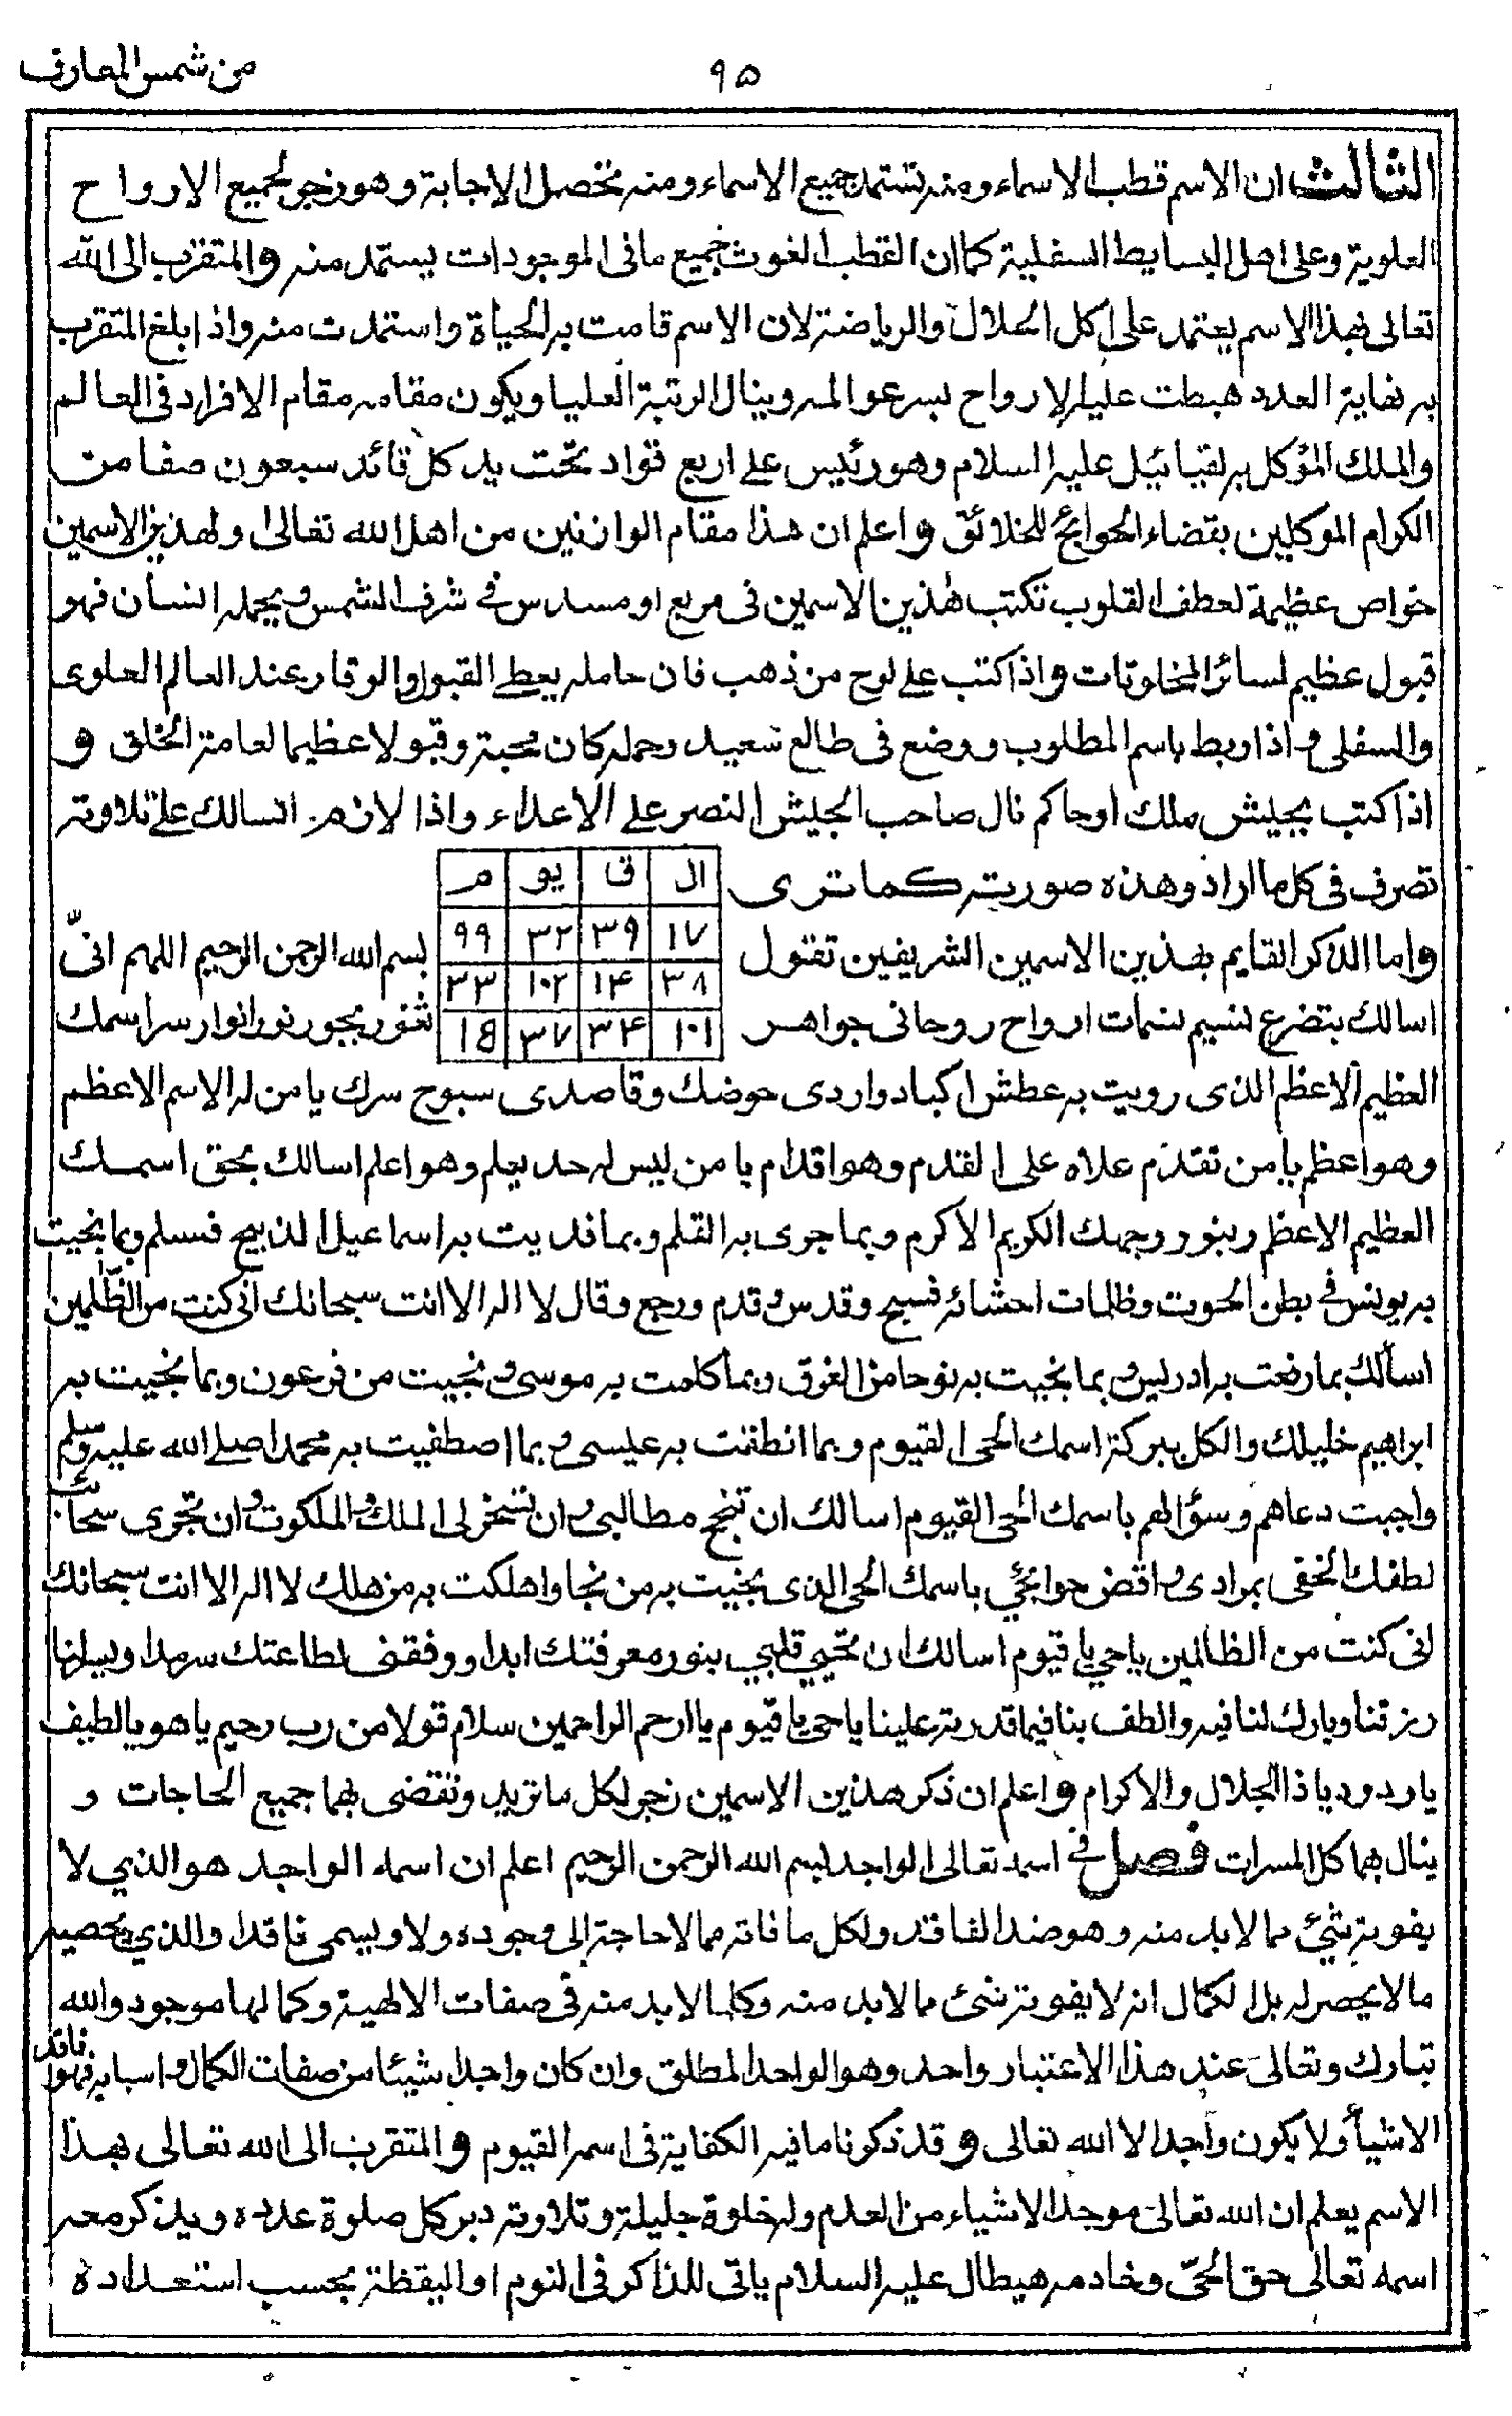 من شمس المعارف
٩٥
الثالث ان الاسم قطب الاسماء ومنه تستمد جميع الاسماء ومنه تحصل الاجابة وهو زجر لجميع الارواح
العلوية وعلى اصل البسايط السفلية كما ان القطب الغوث جميع ما فى الموجودات يستمد منه والمتقرب الى الله
تعالى بهذا الاسم يعتمد على اكل الحلال والرياضة لان الاسم قامت به الحياة واستمدت منه واذا بلغ المتقرب
به نهاية العدد هبطت عليه الارواح بسر عوالمه وينال الرتبة العليا ويكون مقامه مقام الافراد فى العالم
والملك المؤكل به لقيائيل عليه السلام وهو رئيس على اربع قواد تحت يد كل قائد سبعون صفا من
الكرام الموكلين بقضاء الحوائج للخلائق واعلم ان هذا مقام الوازنين من اهل الله تعالى ولهذين الاسمين
خواص عظيمة لعطف القلوب تكتب هذين الاسمين فى مربع او مسدس فى شرف الشمس ويحمله انسان فهو
قبول عظيم لسائر المخلوقات واذا كتب على لوح من ذهب فان حامله يعطى القبول والوقار عند العالم العلوى
والسفلى واذا وبط باسم المطلوب ووضع فى طالع سعيد وحمله كان محبة وقبولا عظيما لعامة الخلق و
اذا كتب بجيش ملك او حاكم نال صاحب الجيش النصر على الاعداء واذا لازم السالك على تلاوته
تصرف فى كل ما اراد وهذه صورته كما ترى
ال ق يو م
واما الذكر القايم بهذين الاسمين الشريفين تقول ١٧ ٣٩ ٣٢ ٩٩ بسم الله الرحمن الرحيم اللهم انىّ
٣٨ ١۴ ١٠٢ ٣٣
اسالك بتضرع نسيم نسمات ارواح روحانى جواهر ١٠١ ٣۴ ٣٧ ١٥ بحور نور انوار سر اسمك
العظيم الاعظم الذى رويت به عطش اكباد واردى حوضك وقاصدى سبوح سرك يا من له الاسم الاعظم
وهو اعظم يا من تقدم علاه على القدم وهو اقدام يا من ليس له حد يعلم وهو اعلم اسالك بحق اسمك
العظيم الاعظم وبنور وجهك الكريم الاكرم وبما جرى به القلم وبما فديت به اسماعيل الذبيح فسلم وبما نجيت
به يونس فى بطن الحوت وظلمات احشائه فسبح وقدس وقدم ورجع وقال لا اله الا انت سبحانك انى كنت من الظّلمين
اسألك بما رفعت به ادريس وبما نجيت به نوحا من الغرق وبما كلمت به موسى ونجيت من فرعون وبما نجيت به
ابراهيم خليلك والكل ببركة اسمك الحى القيوم وبما انطقت به عيسى وبما اصطفيت به محمدا صلى الله عليه وسلم
واجبت دعاهم وسؤالهم باسمك الحى القيوم اسالك ان تنجح مطالبى وان تسخر لى الملك والملكوت وان تجرى سحائب
لطفك الخفى بمرادى واقض حوائجي باسمك الحى الذى نجيت به من نجا واهلكت به من هلك لا اله الا انت سبحانك
انى كنت من الظالمين يا حي يا قيوم اسالك ان تحيي قلبي بنور معرفتك ابدا ووفقنى لطاعتك سرمدا
رزقنا وبارك لنا فيه والطف بنا فيما قدرته علينا يا حى يا قيوم يا ارحم الراحمين سلام قولا من رب رحيم يا هو يا لطيف
يا ودود يا ذا الجلال والاكرام واعلم ان ذكر هذين الاسمين زجر لكل ما تريد وتقضى بهما جميع الحاجات و
ينال بهما كل المسرات فصل فى اسمه تعالى الواجد بسم الله الرحمن الرحيم اعلم ان اسمه الواجد هو الذي لا
يفوته شئ مما لابد منه وهو ضد الفاقد ولكل ما فاته مما لا حاجة الى وجوده ولا ويسمى فاقدا والذي
ما لا يحصر له بل الكمال انه لا يفوته شئ مما لابد منه وكلما لابد منه فى صفات الالهية وكمالها موجود والله
تبارك وتعالى عند هذا الاعتبار واحد وهو الواحد المطلق وان كان واجدا شيئا من صفات الكمال واسبابه فهو فاقد
الاشيأ ولا يكون واجدا الا الله تعالى وقد ذكرنا ما فيه الكفاية فى اسمه القيوم والمتقرب الى الله تعالى بهذا
الاسم يعلم ان الله تعالى موجد الاشياء من العدم وله خلوة جليلة وتلاوته دبر كل صلوة عدده ويذكر معه
اسمه تعالى حق الحىّ وخادمه هيطال عليه السلام ياتى للذاكر فى النوم او اليقظة بحسب استعداده